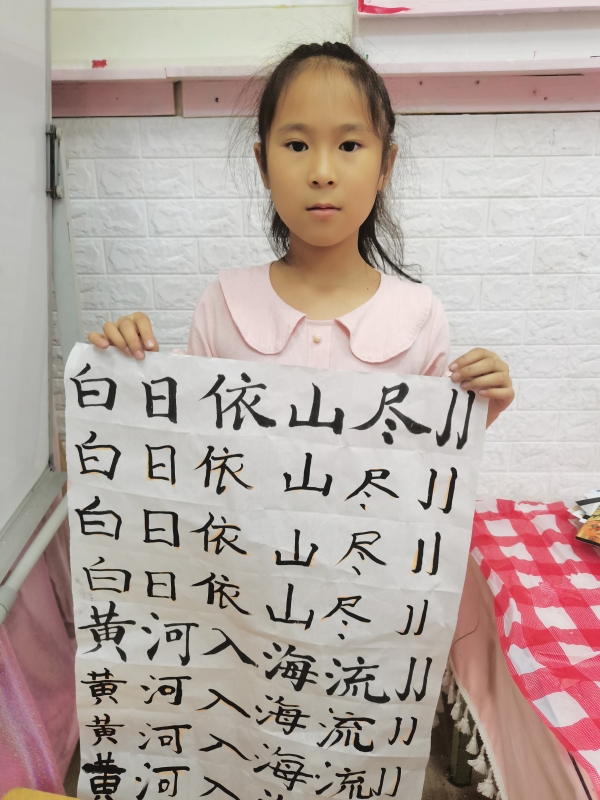 白日依山尽
白日依山尽
白日依山尽
白日依山尽
黄河入海流
黄河入海流
黄河入海流
黄河入海流